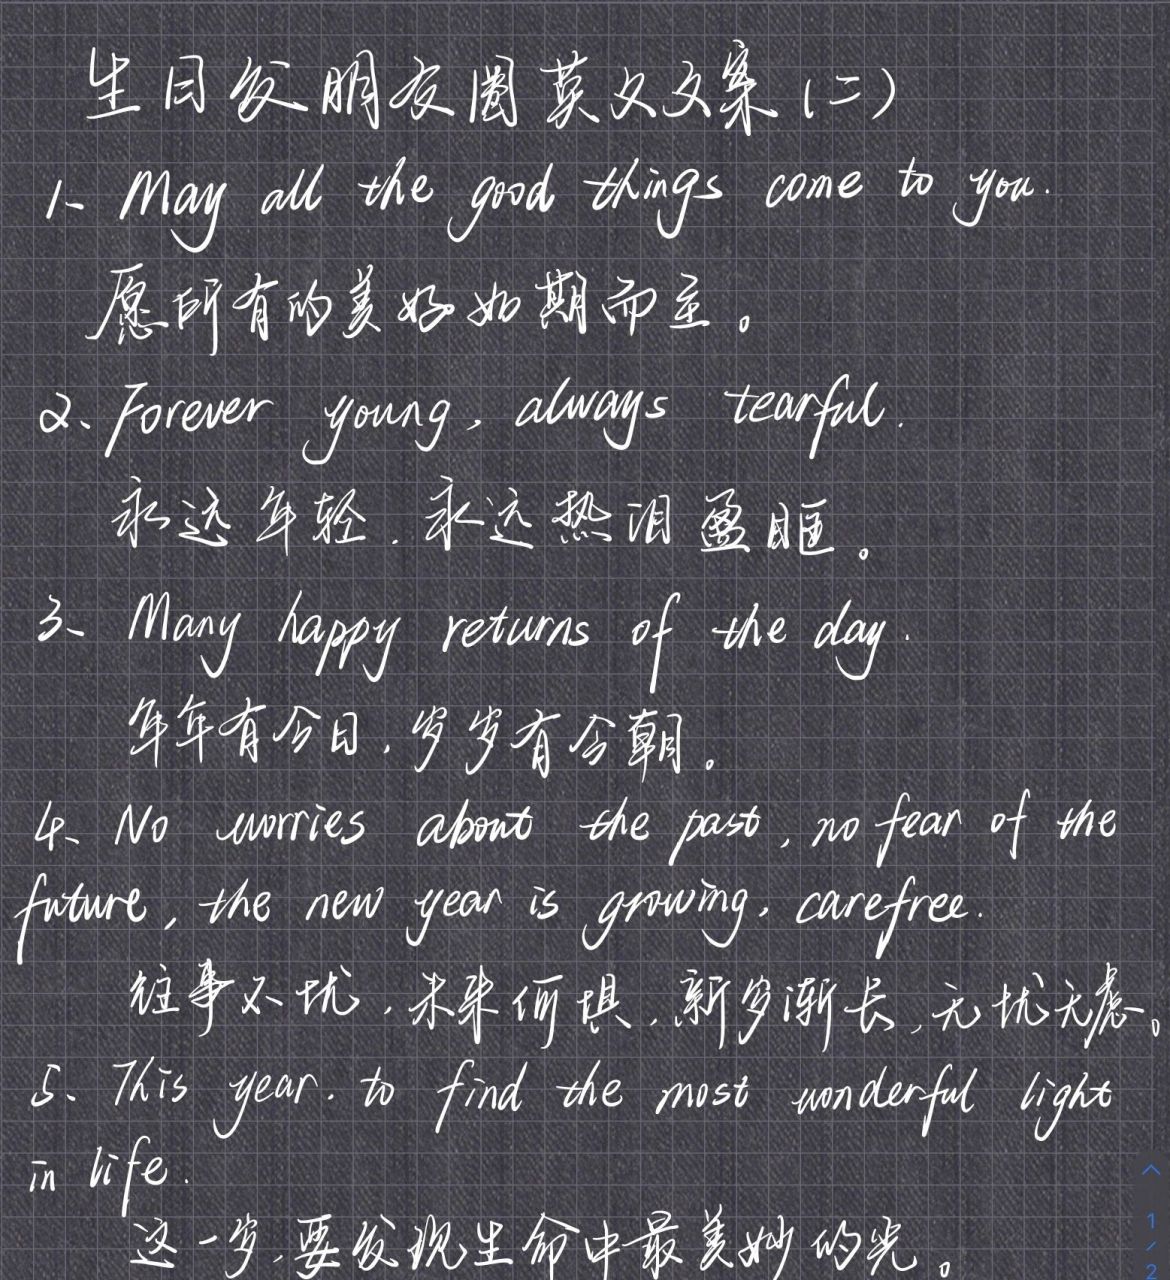 生日发朋友圈英文文案(二)
1、May all the good things come to you.
愿所有的美好如期而至。
2、Forever young, always tearful.
永远年轻,永远热泪盈眶。
3、Many happy returns of the day.
年年有今日,岁岁有今朝。
4、No worries about the past, no fear of the
future, the new year is growing, carefree.
往事不扰,未来何惧,新岁渐长,无忧无虑。
5、This year. to find the most wonderful light
in life.
这一岁,要发现生命中最美妙的光。
1/2